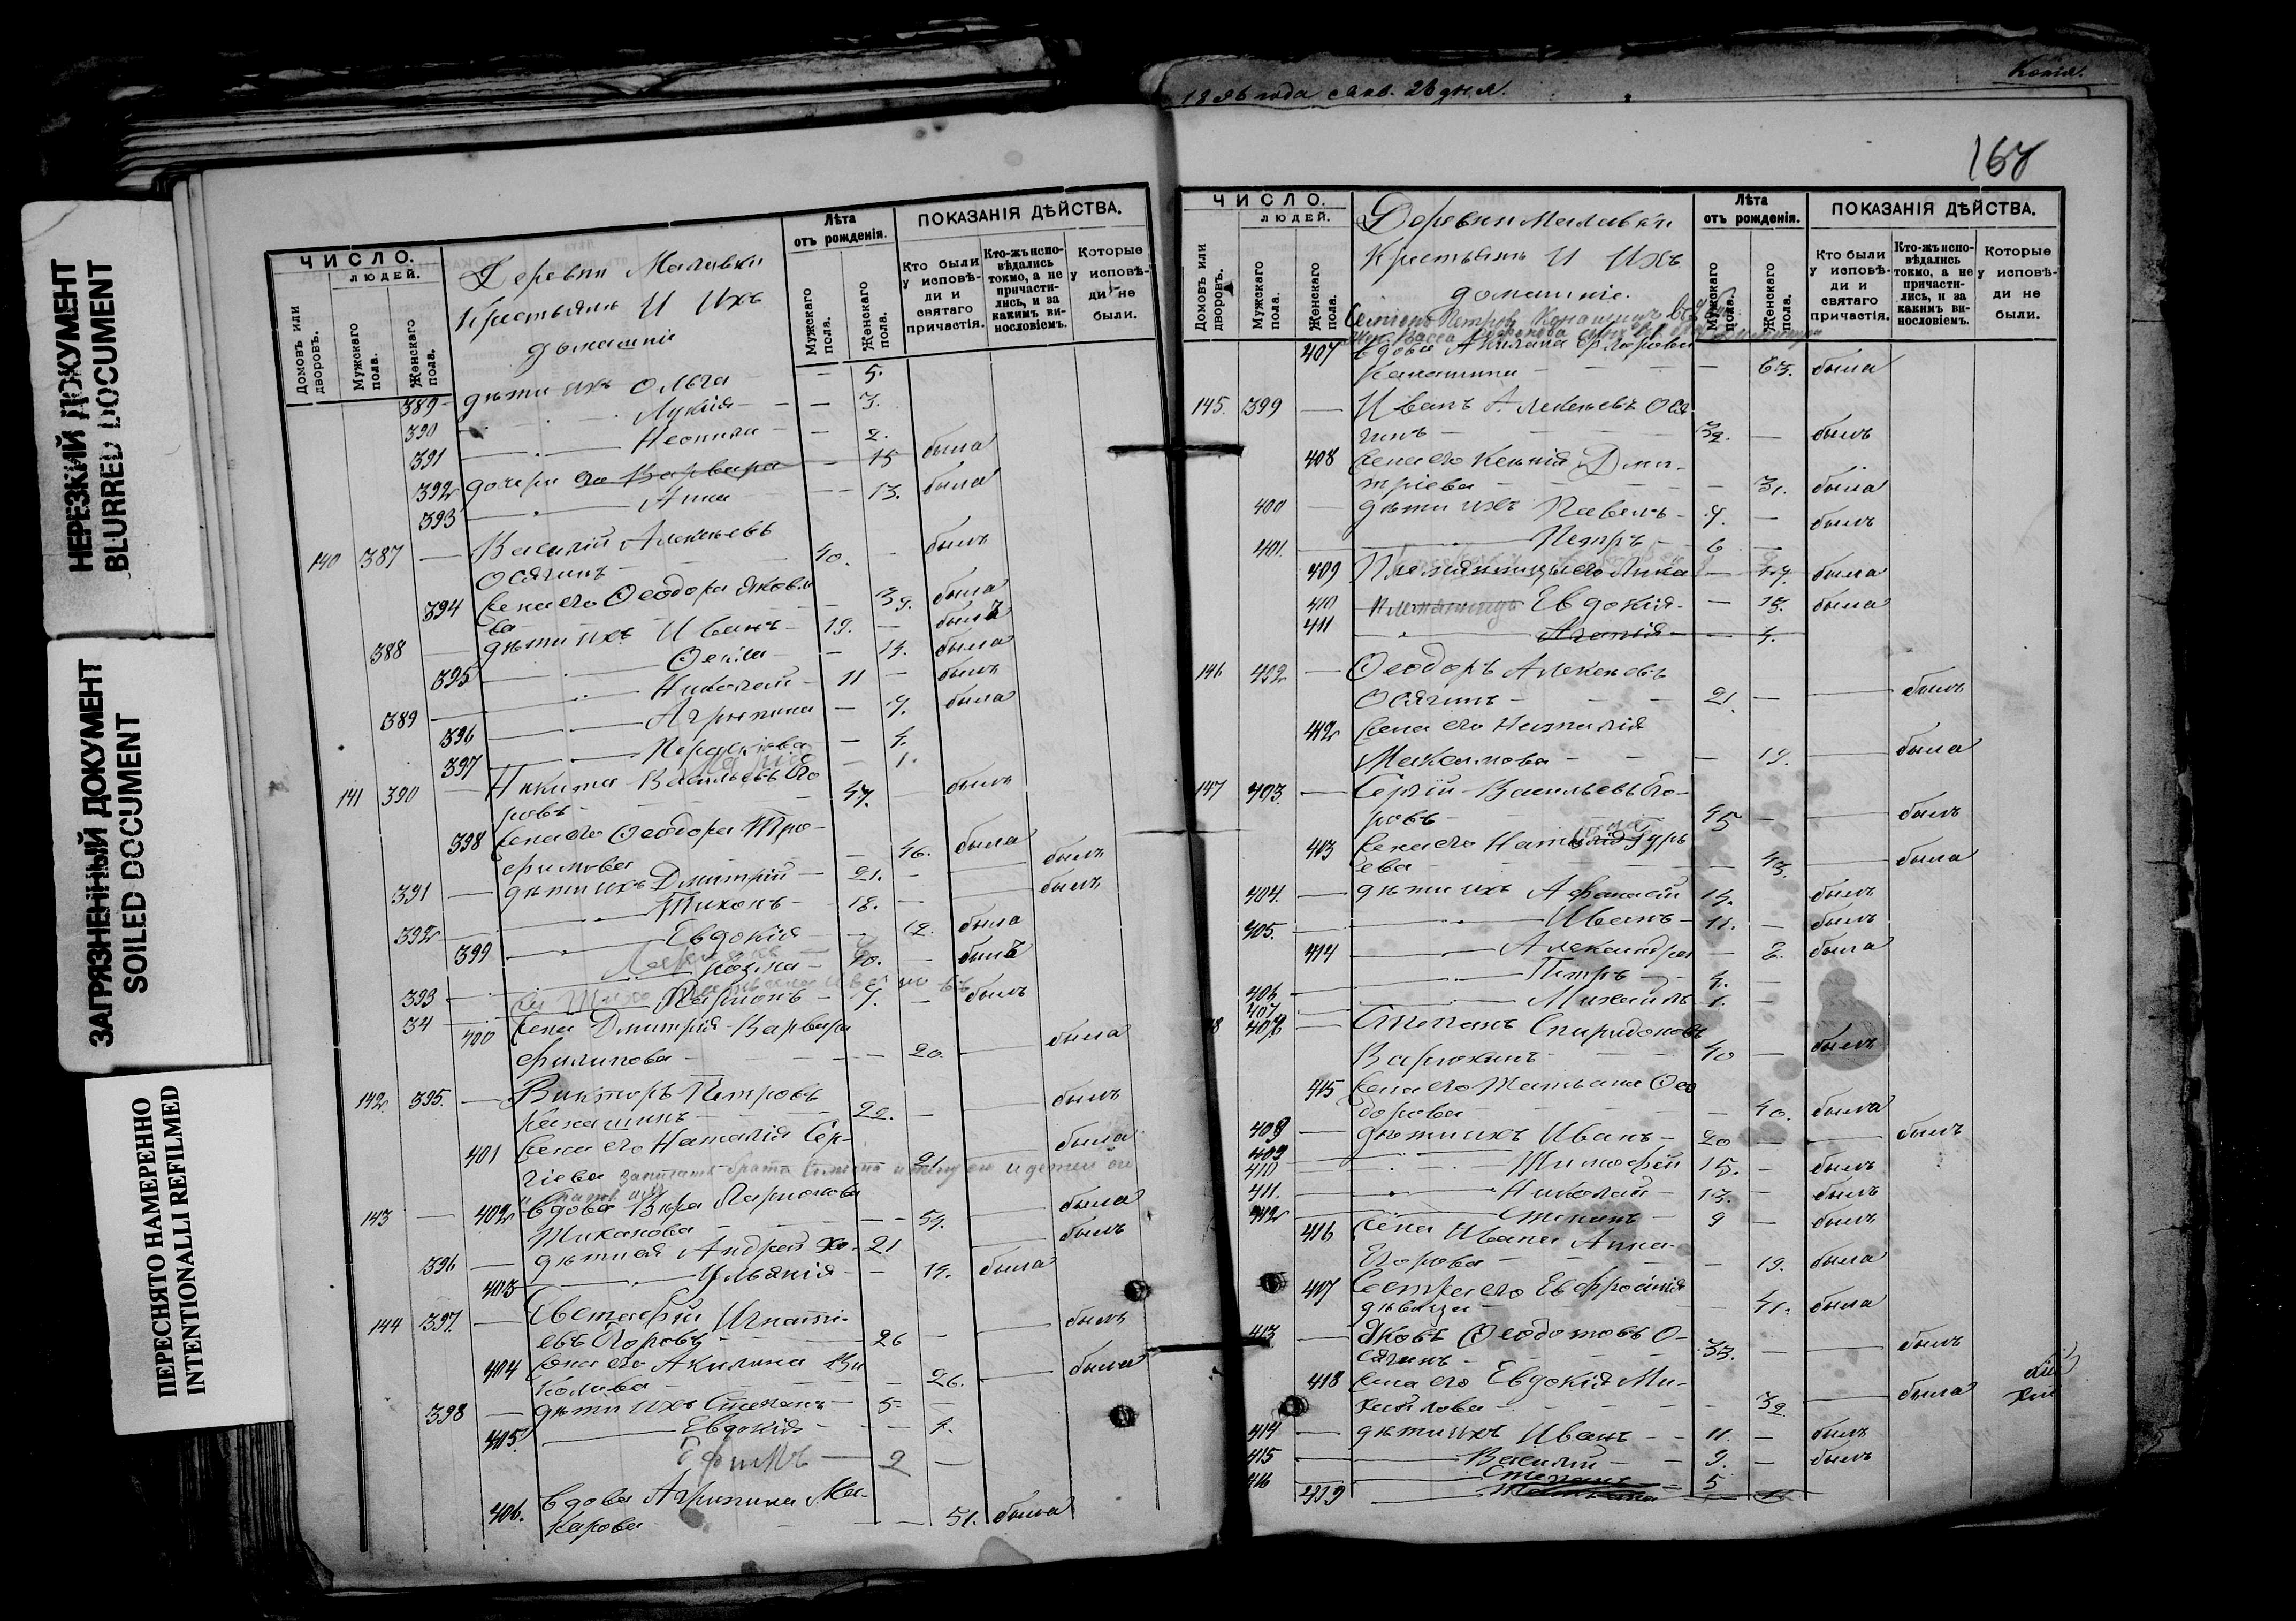 НЕРЕЗКИЙ ДОКУМЕНТ
BLURRED DOCUMENT
ЗАГРЯЗНЕННЫЙ ДОКУМЕНТ
SOILED DOCUMENT
ПЕРЕСНЯТО НАМЕРЕННО
INTENTIONALLI REFILMED
ЧИСЛО.
ЛЮДЕЙ.
Домовъ или дворовъ.
Мужскаго пола.
Женскаго пола.
Деревни Малавки
Крестьяне И Ихъ
домашніе
Лѣта
отъ рожденія.
Мужскаго пола.
Женскаго пола.
ПОКАЗАНІЯ ДѢЙСТВА.
Кто были у исповѣ-ди и святаго причастія.
Кто-жъ испо-вѣдались токмо, а не причасти-лись, и за какимъ ви-нословіемъ.
Которые у исповѣ-ди не были.
389 дѣти ихъ Ольга — 5.
390 Лукія — 3.
391 Неонила — 2.
392 дочери его Варвара — 15 была
393 Анна — 13. была
140 387 — Василій Алексѣевъ
Осягинъ 40. — былъ
394 Жена его Ѳеодора Яковле
ва — 39. была
388 — дѣти ихъ Иванъ 19. — былъ
395 Ѳекла — 14. была
389 Николай 11 — былъ
396 Агрипина — 7. была
397 Параскева — 4.
1.
141 390 — Никита Васильевъ Его
ровъ 47. — былъ
398 Жена его Ѳеодора Тро-
фимова — 46. была
391 — дѣти ихъ Дмитрій 21. — былъ
392 Тихонъ 18. — былъ
399 Евдокія — 12. была
393 Козма 10. — былъ
34 Ларіонъ 7. — былъ
400 Жена Дмитрія Варвара
Филипова — 20. была
142. 395. — Викторъ Петровъ
Канашинъ 22. — былъ
401 Жена его Наталія Сер-
гіева — 21. была
143 — 402 Вдова Вѣра Ларионова
Тиханова — 59. была
396 — дѣти ея Андрей Хо. 21 былъ
403 Ульянія — 19. была
144 397. — Евстафій Игнаті-
евъ Егоровъ 26 — былъ
404 Жена его Акилина Ни
колаева — 26. была
398 — дѣти ихъ Степанъ 5 —
405. Евдокія — 4.
Ефимъ — 2 —
406. Вдова Агрипина Ма-
карова — 51. была
1896 года Янв. 26 дня.
Копія.
168
ЧИСЛО.
ЛЮДЕЙ.
Домовъ или дворовъ.
Мужскаго пола.
Женскаго пола.
Деревни Малавки
Крестьяне И Ихъ
домашніе.
Лѣта
отъ рожденія.
Мужскаго пола.
Женскаго пола.
ПОКАЗАНІЯ ДѢЙСТВА.
Кто были у исповѣ-ди и святаго причастія.
Кто-жъ испо-вѣдались токмо, а не причасти-лись, и за какимъ ви-нословіемъ.
Которые у исповѣ-ди не были.
Симіонъ Петровъ Конашинъ
407 Вдова Акилина Фларова
Канашина — 63. была
145. 399 — Иванъ Алексѣевъ Ося
гинъ 32. — былъ
408 Жена его Ксенія Дми-
тріева — 31. была
400 — дѣти ихъ Павелъ 9. — былъ
401. Петръ 6 —
409 Племянницы его Анна — 17. была
410 Евдокія — 15. была
411 Агапія — 4.
146 402 — Ѳеодоръ Алексѣевъ
Осягинъ 21. — былъ
412 Жена его Наталія
Максимова — 19. была
147 403. — Сергій Васильевъ Его-
ровъ 45 — былъ
413 Жена его Гурь
ева — 43. была
404. — дѣти ихъ Афанасій 14. былъ
405. Иванъ 11. — былъ
414 Александра — 8. была
406 Петръ 4. —
407. Михаилъ 1. —
408 — Степанъ Спиридоновъ
Варюхинъ 40 — былъ
415 Жена его Татьяна Ѳео
дорова — 40. была
409 — дѣти ихъ Иванъ 20 — былъ
410 Тимофей 15. — былъ
411. Николай 13. — былъ
412 Степанъ 9 — былъ
416 Жена Ивана Анна
Егорова — 19. была
417 Сестра его Евфросинія
дѣвица — 41. была
413 — Яковъ Ѳеодотовъ О-
сягинъ 33. — былъ
418 Жена его Евдокія Ми-
хайлова — 32 была
414 — дѣти ихъ Иванъ 11. — былъ
415 Василій 9. — былъ
416 Степанъ 5
419 Татьяна